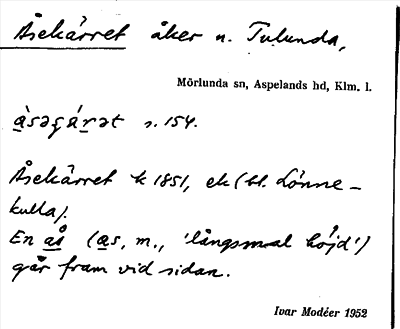 Åsekärret åker n. Tulunda,
Mörlunda sn, Aspelands hd, Klm. l.
s. 154.
Åsekärret k 1851, ek (bl. Lönne-
kulla).
En ås (as, m., 'långsmal höjd')
går fram vid sidan.
Ivar Modéer 1952